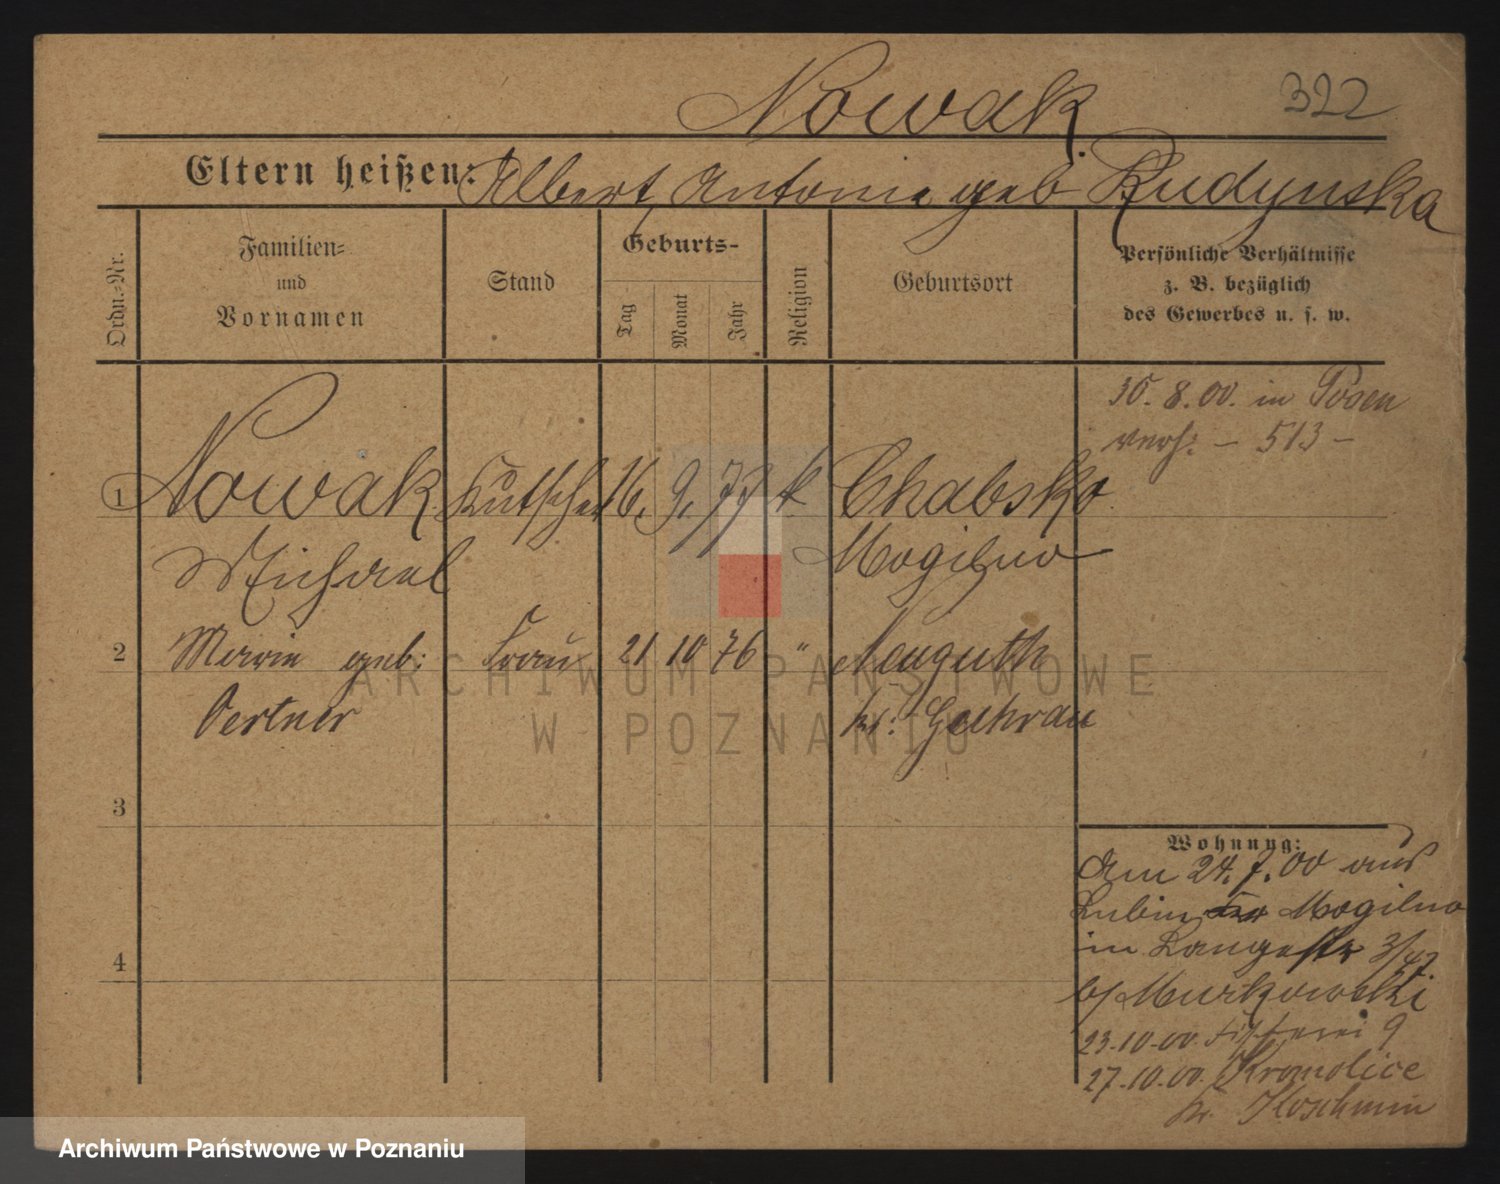 Nowak. 322
Eltern heißen: Albert, Antonie geb Rudynska
Ordn.-Nr. Familien- und Vornamen Stand Geburts- Tag Monat Jahr Religion Geburtsort Persönliche Verhältnisse z. B. bezüglich des Gewerbes u. s. w.
30. 8. 00. in Posen
verh: – 513 –
1 Nowak Kutscher 16. 9. 77 k Chabsko
Michael Mogilno
2 Marie geb: Frau 21 10 76 " Neuguth
Oertner kr: Guhrau
3
4
Wohnung:
Am 24. 7. 00 aus
Lubin Mogilno
in Langestr 3/47.
b/ Murkowski
23.10.00. Fischerei 9
27.10.00. Kromolice
kr. Koschmin
ARCHIWUM PAŃSTWOWE
W POZNANIU
Archiwum Państwowe w Poznaniu